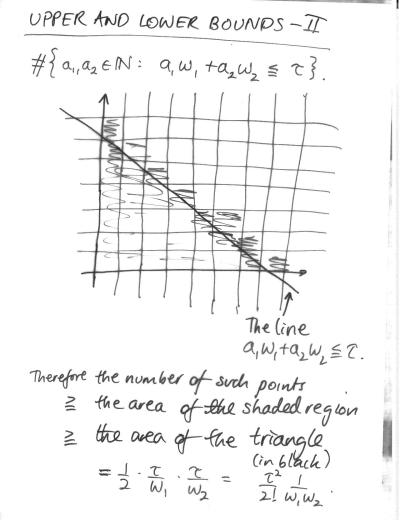 UPPER AND LOWER BOUNDS - II
#{a₁, a₂ ∈ ℕ : a₁w₁ + a₂w₂ ≦ τ}.
The line
a₁w₁ + a₂w₂ ≦ τ.
Therefore the number of such points
≧ the area of the shaded region
≧ the area of the triangle
(in black)
= 1/2 · τ/w₁ · τ/w₂ = τ²/2! 1/w₁w₂.